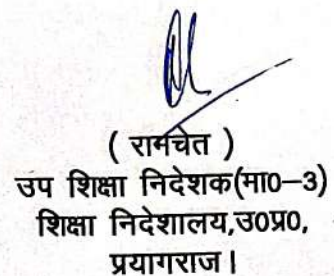 ( रामचेत )
उप शिक्षा निदेशक(मा0-3)
शिक्षा निदेशालय,उ0प्र0,
प्रयागराज।